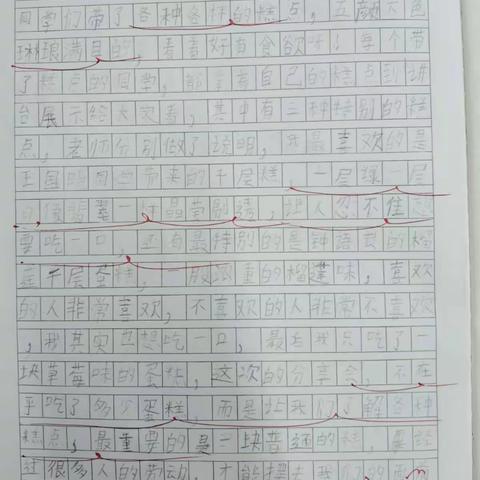 同学们带了各种各样的糕点，五颜六色
琳琅满目的，看着好有食欲呀！每个带
了糕点的同学，都拿着自己的糕点到讲
台展示给大家看，其中有三种特别的糕
点，老师分别做了说明，我最喜欢的是
的同学带来的千层糕，一层绿一层
白像翡翠一样晶莹剔透，让人忍不住
要吃一口，还有最特别的是钟语芸的榴
莲千层蛋糕，一股浓重的榴莲味，喜欢
的人非常喜欢，不喜欢的人非常不喜欢
，我其实也想吃一口，最后我只吃了一
块草莓味的蛋糕，这次的分享会，不在
乎吃了多少蛋糕，而是让我们了解各种
糕点，最重要的是一块普通的糕，要经
过很多人的劳动，才能摆上我们的